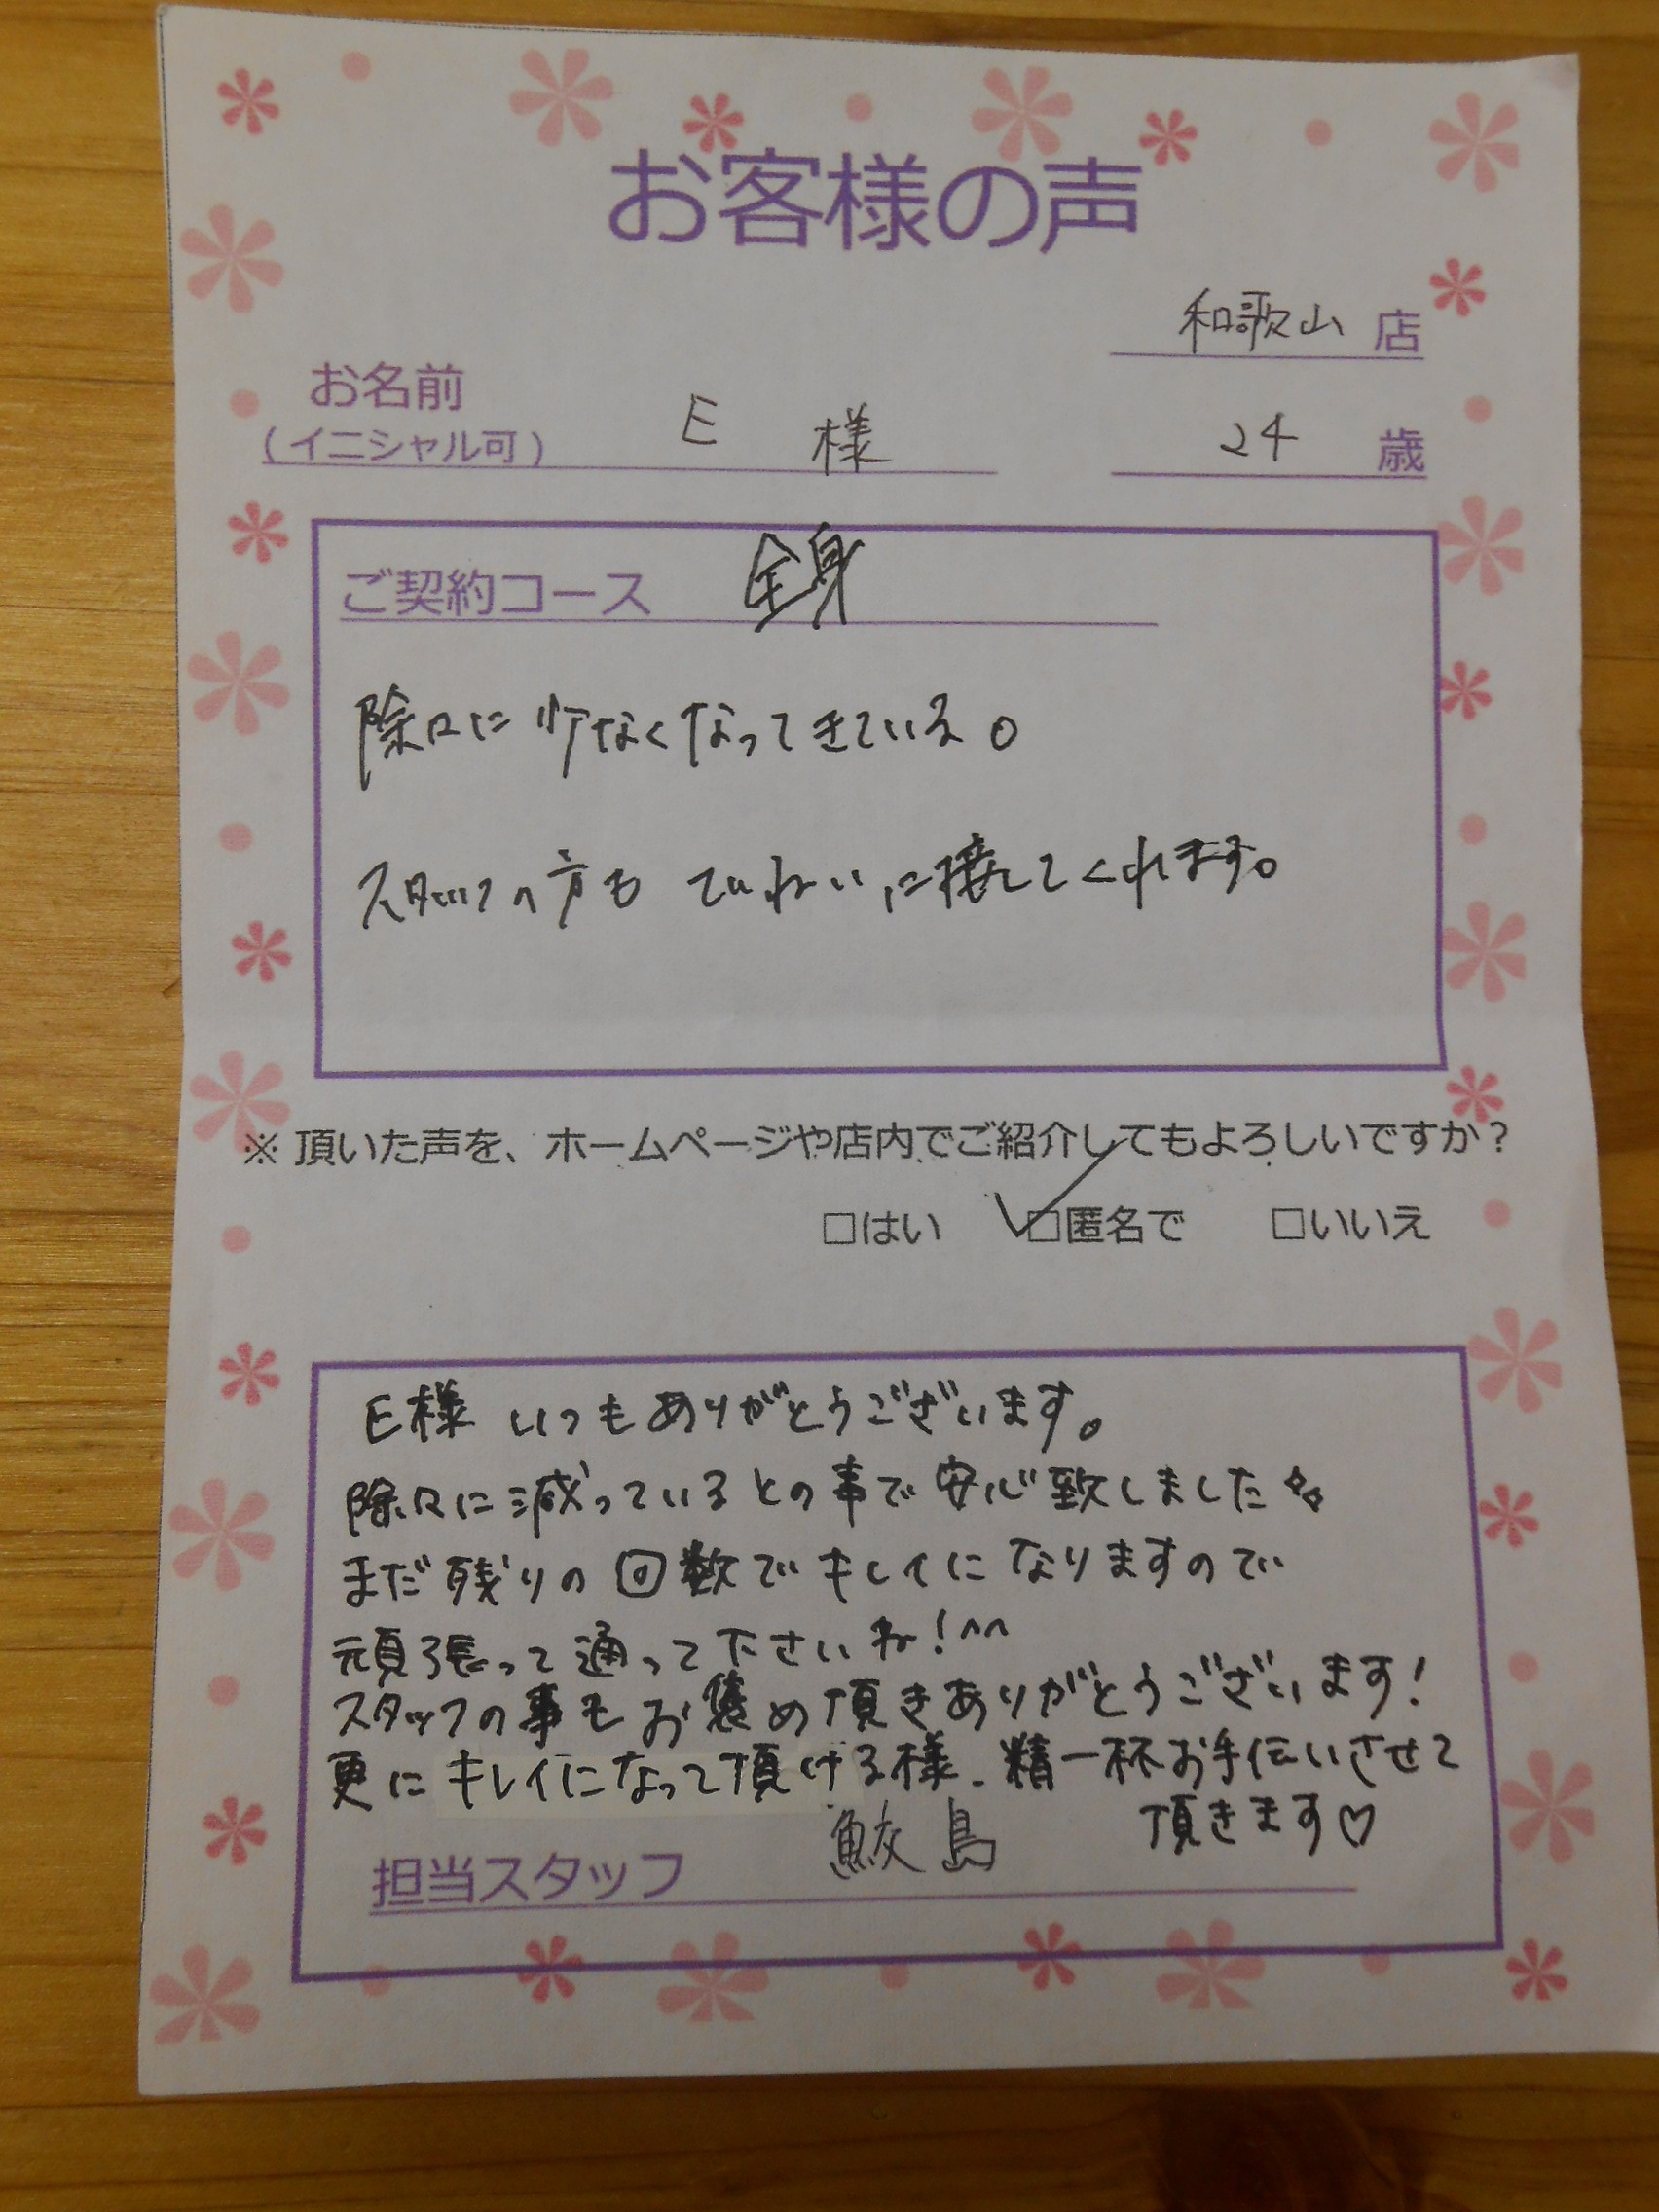 お客様の声
和歌山 店
お名前
(イニシャル可) E 様 24 歳
ご契約コース 全身
除々に少なくなってきている。
スタッフの方もていねいに接してくれます。
※頂いた声を、ホームページや店内でご紹介してもよろしいですか？
□はい ☑匿名で □いいえ
E様 いつもありがとうございます。
除々に減っているとの事で安心致しました
まだ残りの回数でキレイになりますので
頑張って通って下さいね！^^
スタッフの事もお褒め頂きありがとうございます！
更にキレイになって頂ける様、精一杯お手伝いさせて
頂きます♡
担当スタッフ 鮫島